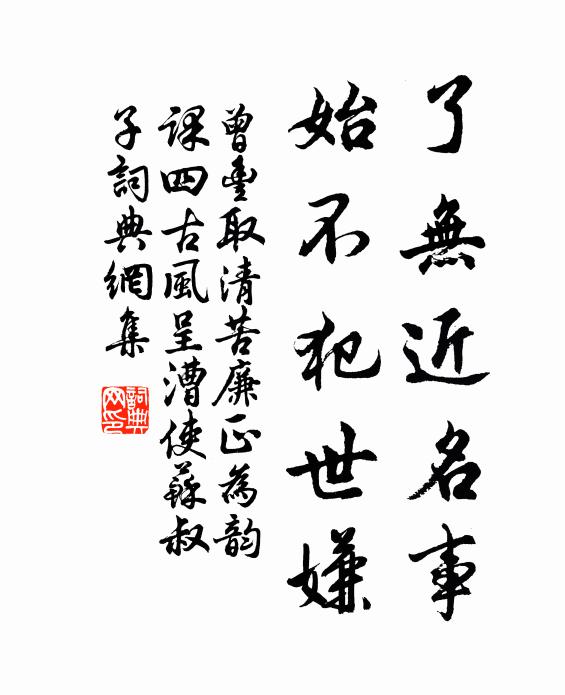 了無近名事
始不犯世嫌
曾豊取清苦廉正為韵
課四古風呈漕使蘇叔
子詞典網集
詞典网印